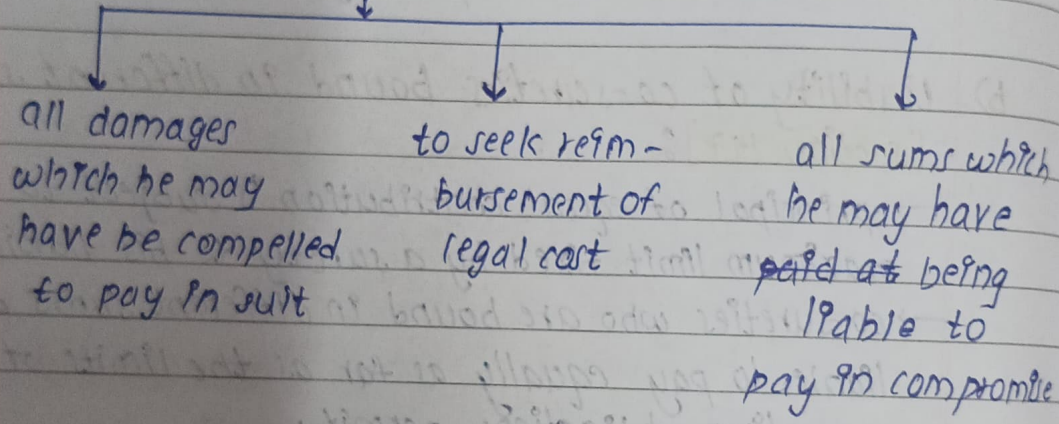 all damages
which he may
have be compelled
to pay in suit
to seek reim-
bursement of
legal cost
all sums which
he may have
paid at being
liable to
pay in compromise